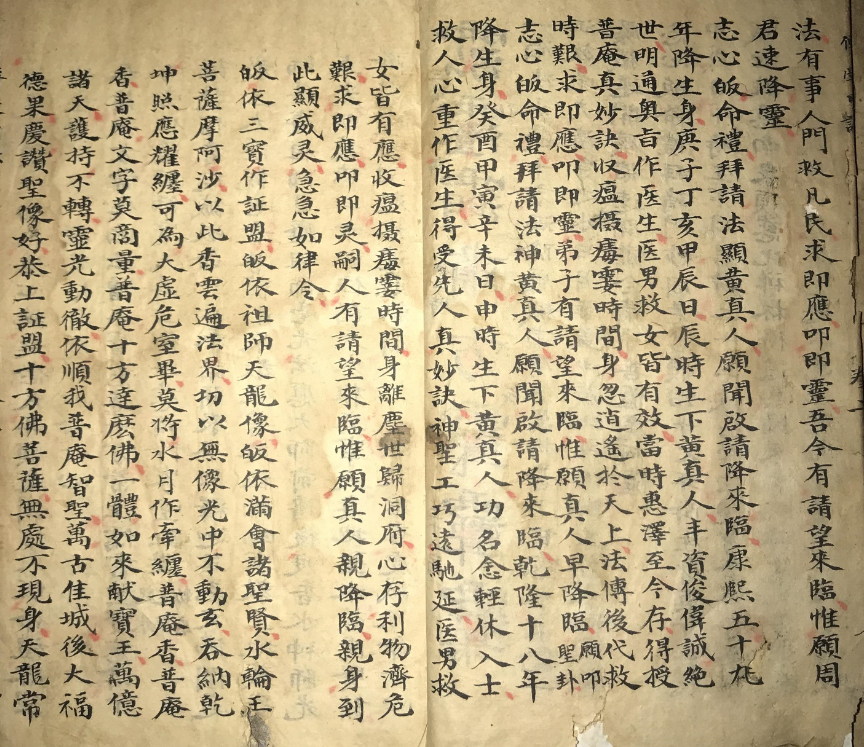 法有事人門救凡民求即應叩即靈吾今有請望來臨惟願周
君速降靈
志心皈命禮拜請法顯黄真人願聞啟請降來臨康熙五十九
年降生身庚子丁亥甲辰日辰時生下黄真人丰資俊偉誠絶
世明通奥旨作医生医男救女皆有效當時惠澤至今存得授
普庵真妙訣收瘟攝毒霎時間身忽逍遙於天上法傳後代救
時艱求即應叩即靈弟子有請望來臨惟願真人早降臨聖卦願叩
志心皈命禮拜請法神黄真人願聞啟請降來臨乾隆十八年
降生身癸酉甲寅辛未日申時生下黄真人功名念輕休入士
救人心重作医生得受先人真妙訣神聖工巧遠馳延医男救
女皆有應收瘟攝毒霎時間身離塵世歸洞府心存利物濟危
艱求即應叩即灵嗣人有請望來臨惟願真人親降臨親身到
此顯威灵急急如律令
皈依三寶作証盟皈依祖師天龍像皈依滿會諸聖賢水輪王
菩薩摩阿沙以此香雲遍法界切以無像光中不動玄吞納乾
坤照應耀纏可為大虚危室畢莫将水月作牵纏普庵香普庵
香普庵文字莫啇量普庵十方達麽佛一體如來献寶王萬億
諸天護持不轉靈光動徹依順我普庵智聖萬古佳城後大福
德果慶讚聖像好恭上証盟十方佛菩薩無處不現身天龍常